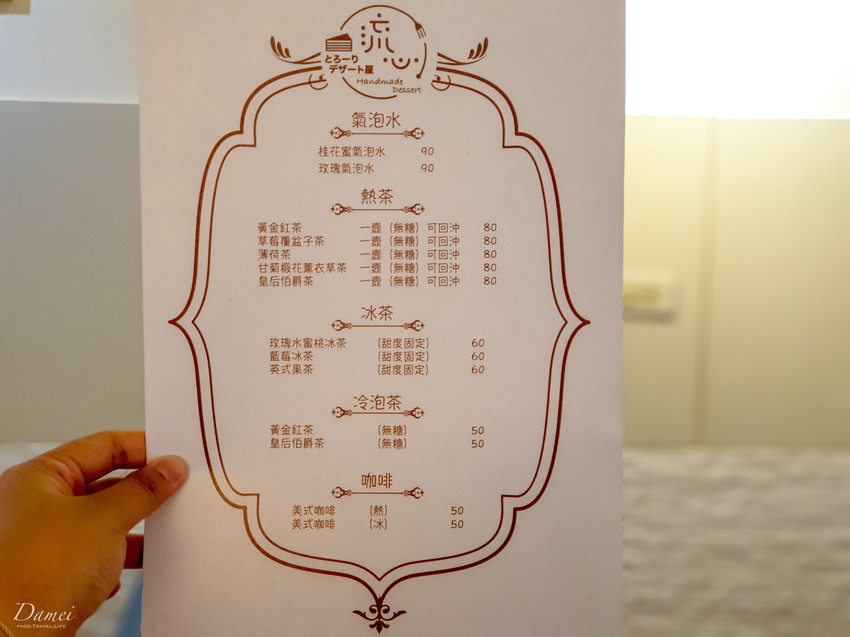 流心
とろーり
デザート屋
Handmade
Dessert
氣泡水
桂花蜜氣泡水 90
玫瑰氣泡水 90
熱茶
黃金紅茶 一壺 (無糖) 可回沖 80
草莓覆盆子茶 一壺 (無糖) 可回沖 80
薄荷茶 一壺 (無糖) 可回沖 80
甘菊椴花薰衣草茶 一壺 (無糖) 可回沖 80
皇后伯爵茶 一壺 (無糖) 可回沖 80
冰茶
玫瑰水蜜桃冰茶 (甜度固定) 60
藍莓冰茶 (甜度固定) 60
英式果茶 (甜度固定) 60
冷泡茶
黃金紅茶 (無糖) 50
皇后伯爵茶 (無糖) 50
咖啡
美式咖啡 (熱) 50
美式咖啡 (冰) 50
Damei
FOOD.TRAVEL.LIFE